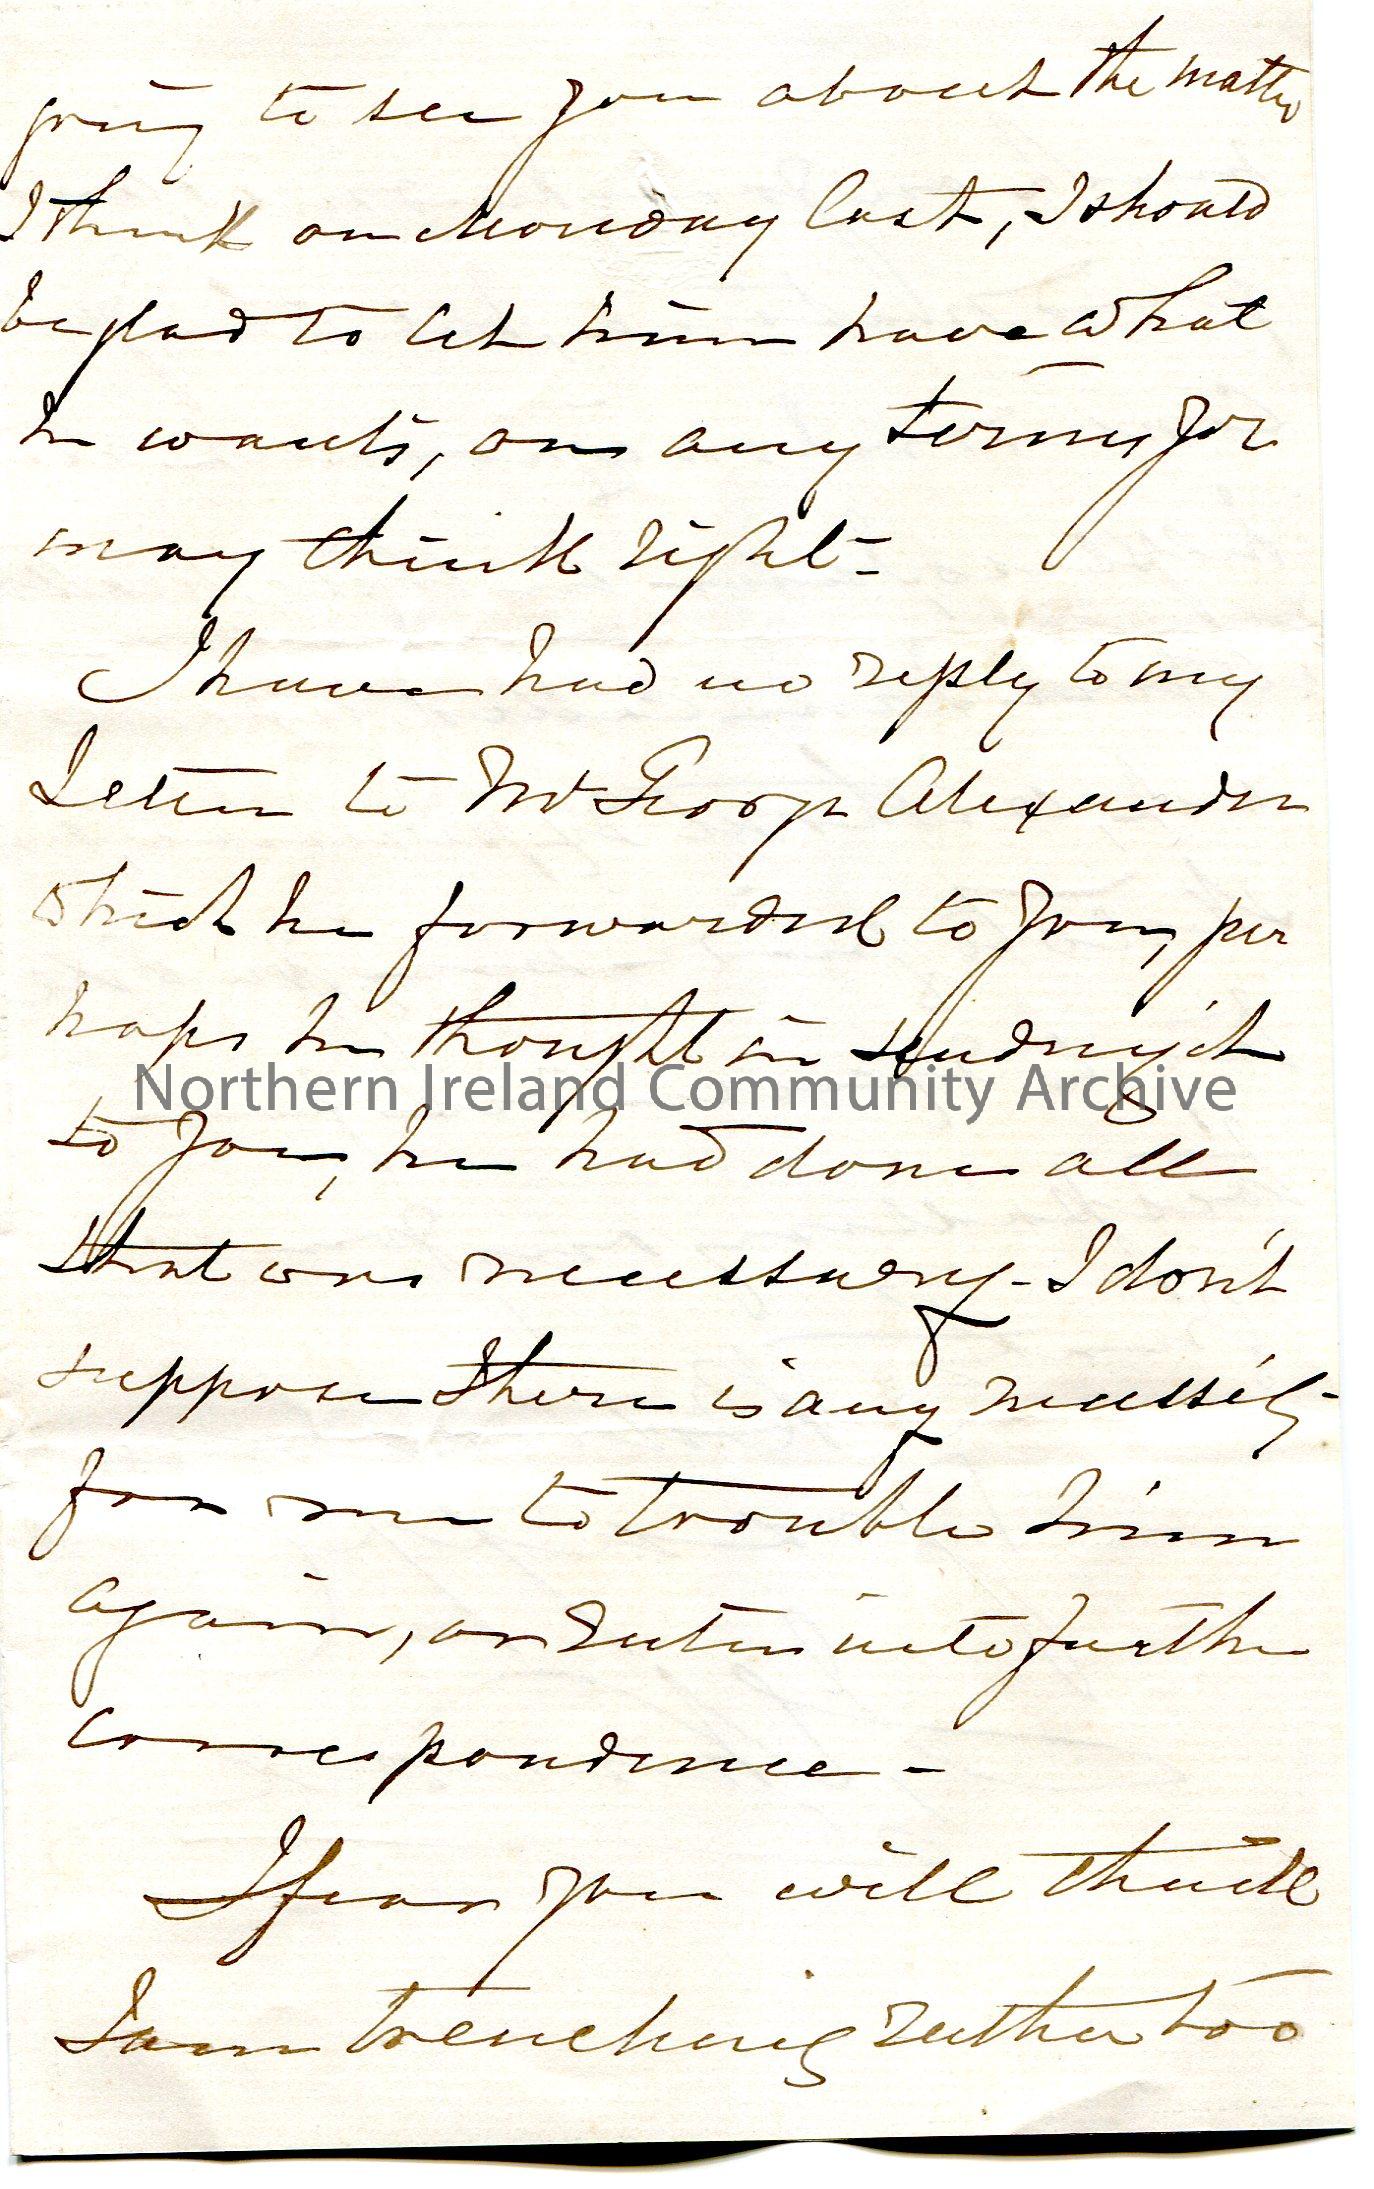 going to see you about the matter
I think on Monday last, I should
be glad to let him have what
he wants, on any terms you
may think right -
I have had no reply to my
Letter to Mr George Alexander
which he forwarded to you, per
haps he thought in sending it
Northern Ireland Community Archive
to you, he had done all
that was necessary - I don't
suppose there is any necessity
for me to trouble him
again, or enter into further
correspondence -
I fear you will think
I am trenching rather too